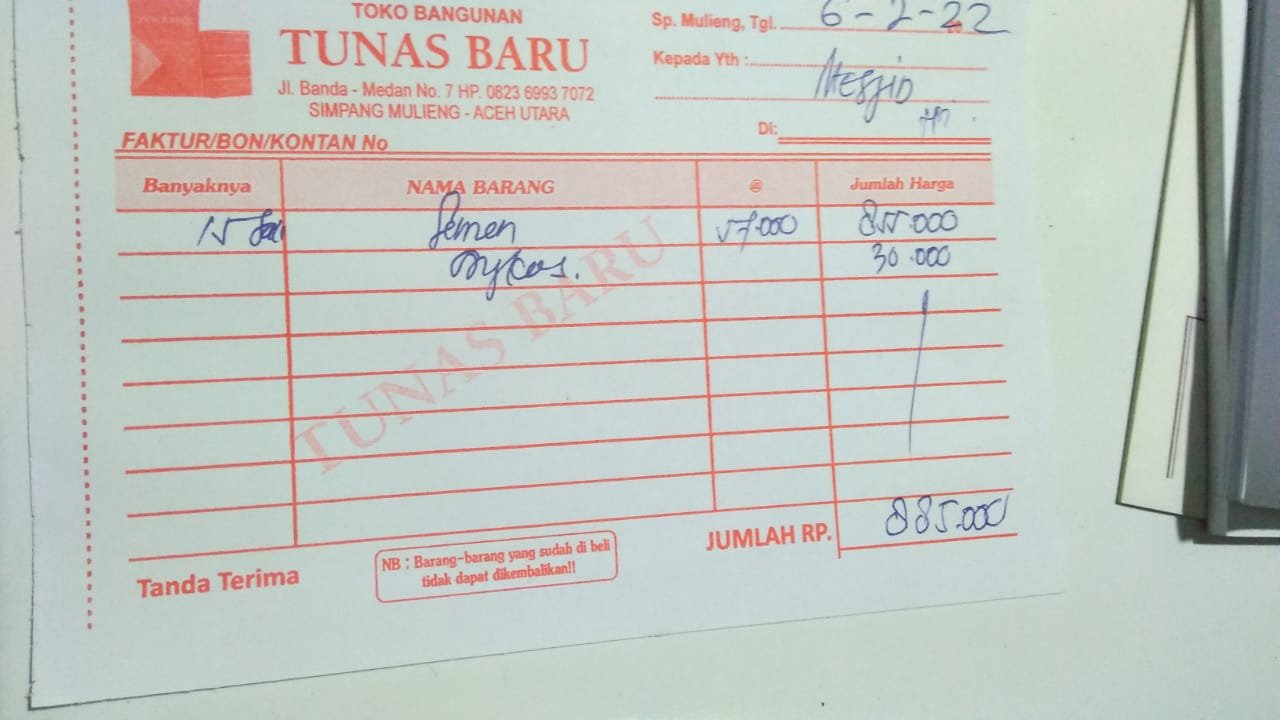 TOKO BANGUNAN
TUNAS BARU
Jl. Banda - Medan No. 7 HP. 0823 6993 7072
SIMPANG MULIENG - ACEH UTARA
Sp. Mulieng, Tgl. 6-2-22
Kepada Yth :
Mesjid
Di:
FAKTUR/BON/KONTAN No
Banyaknya NAMA BARANG @ Jumlah Harga
15 Semen 57.000 855.000
Ongkos. 30.000
TUNAS BARU
JUMLAH RP. 885.000
Tanda Terima
NB : Barang-barang yang sudah di beli
tidak dapat dikembalikan!!